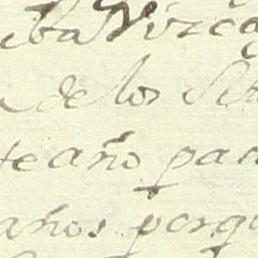 iba Vizca
de los Set
te año pad
años porq